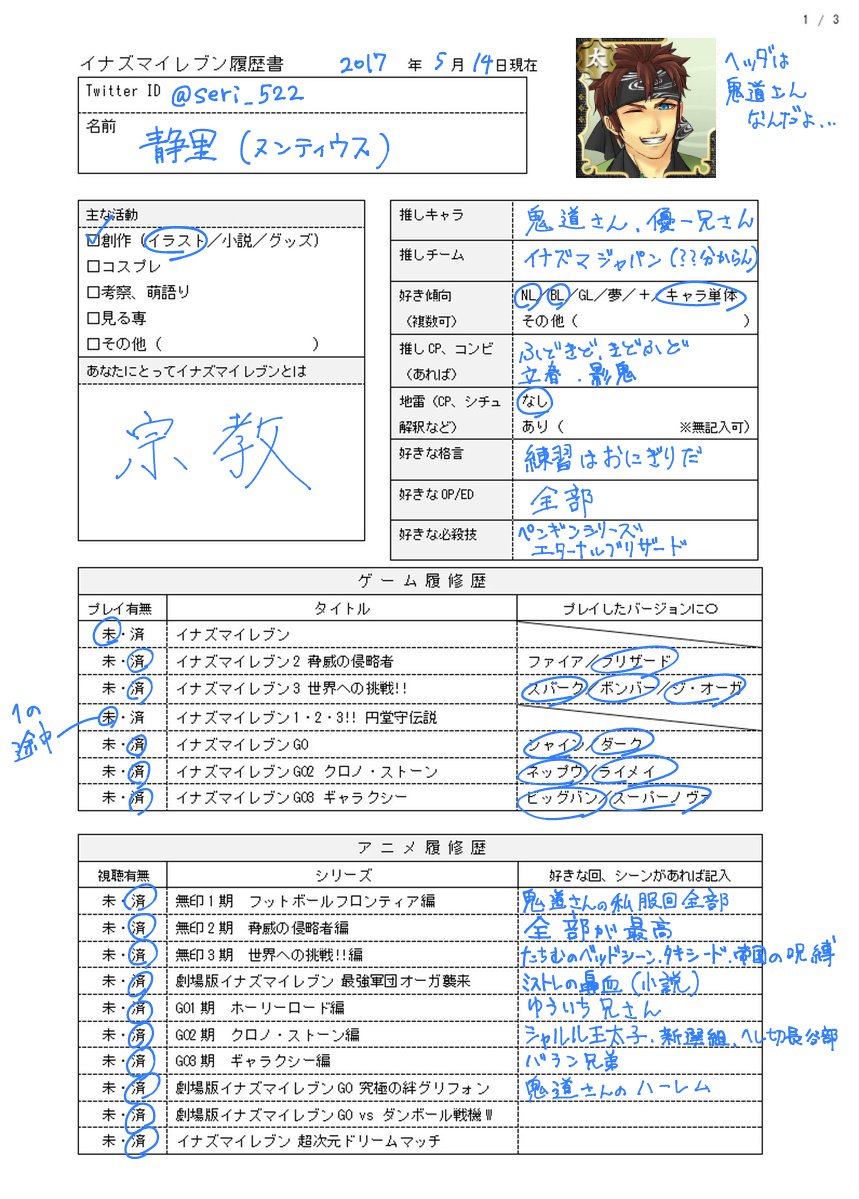 1 / 3
イナズマイレブン履歴書 2017 年 5 月 14 日現在
Twitter ID @seri_522
名前
静里 (ヌンティウス)
太
ヘッダは
鬼道さん
なんだよ...
主な活動
☑創作 (イラスト/小説/グッズ)
□コスプレ
□考察、萌語り
□見る専
□その他 ( )
あなたにとってイナズマイレブンとは
宗教
推しキャラ 鬼道さん、優一兄さん
推しチーム イナズマジャパン(??分からん)
好き傾向 NL/BL/GL/夢/+/キャラ単体
(複数可) その他 ( )
推しCP、コンビ ふどきど、きどふど
(あれば) 立春、影鬼
地雷 (CP、シチュ なし
解釈など) あり ( ※無記入可)
好きな格言 練習はおにぎりだ
好きなOP/ED 全部
好きな必殺技 ペンギンシリーズ
エターナルブリザード
ゲーム履修歴
プレイ有無 タイトル プレイしたバージョンに○
未・済 イナズマイレブン
未・済 イナズマイレブン2 脅威の侵略者 ファイア/ブリザード
未・済 イナズマイレブン3 世界への挑戦!! スパーク/ボンバー/ジ・オーガ
1の
途中
未・済 イナズマイレブン1・2・3!! 円堂守伝説
未・済 イナズマイレブンGO シャイン/ダーク
未・済 イナズマイレブンGO2 クロノ・ストーン ネップウ/ライメイ
未・済 イナズマイレブンGO3 ギャラクシー ビッグバン/スーパーノヴァ
アニメ履修歴
視聴有無 シリーズ 好きな回、シーンがあれば記入
未・済 無印1期 フットボールフロンティア編 鬼道さんの私服回全部
未・済 無印2期 脅威の侵略者編 全部が最高
未・済 無印3期 世界への挑戦!!編 たちむのベッドシーン、タキシード、帝国の呪縛
未・済 劇場版イナズマイレブン 最強軍団オーガ襲来 ミストレの鼻血(小説)
未・済 GO1期 ホーリーロード編 ゆういち兄さん
未・済 GO2期 クロノ・ストーン編 シャルル王太子、新選組、へし切長谷部
未・済 GO3期 ギャラクシー編 バラン兄弟
未・済 劇場版イナズマイレブンGO 究極の絆グリフォン 鬼道さんのハーレム
未・済 劇場版イナズマイレブンGO vs ダンボール戦機W
未・済 イナズマイレブン 超次元ドリームマッチ